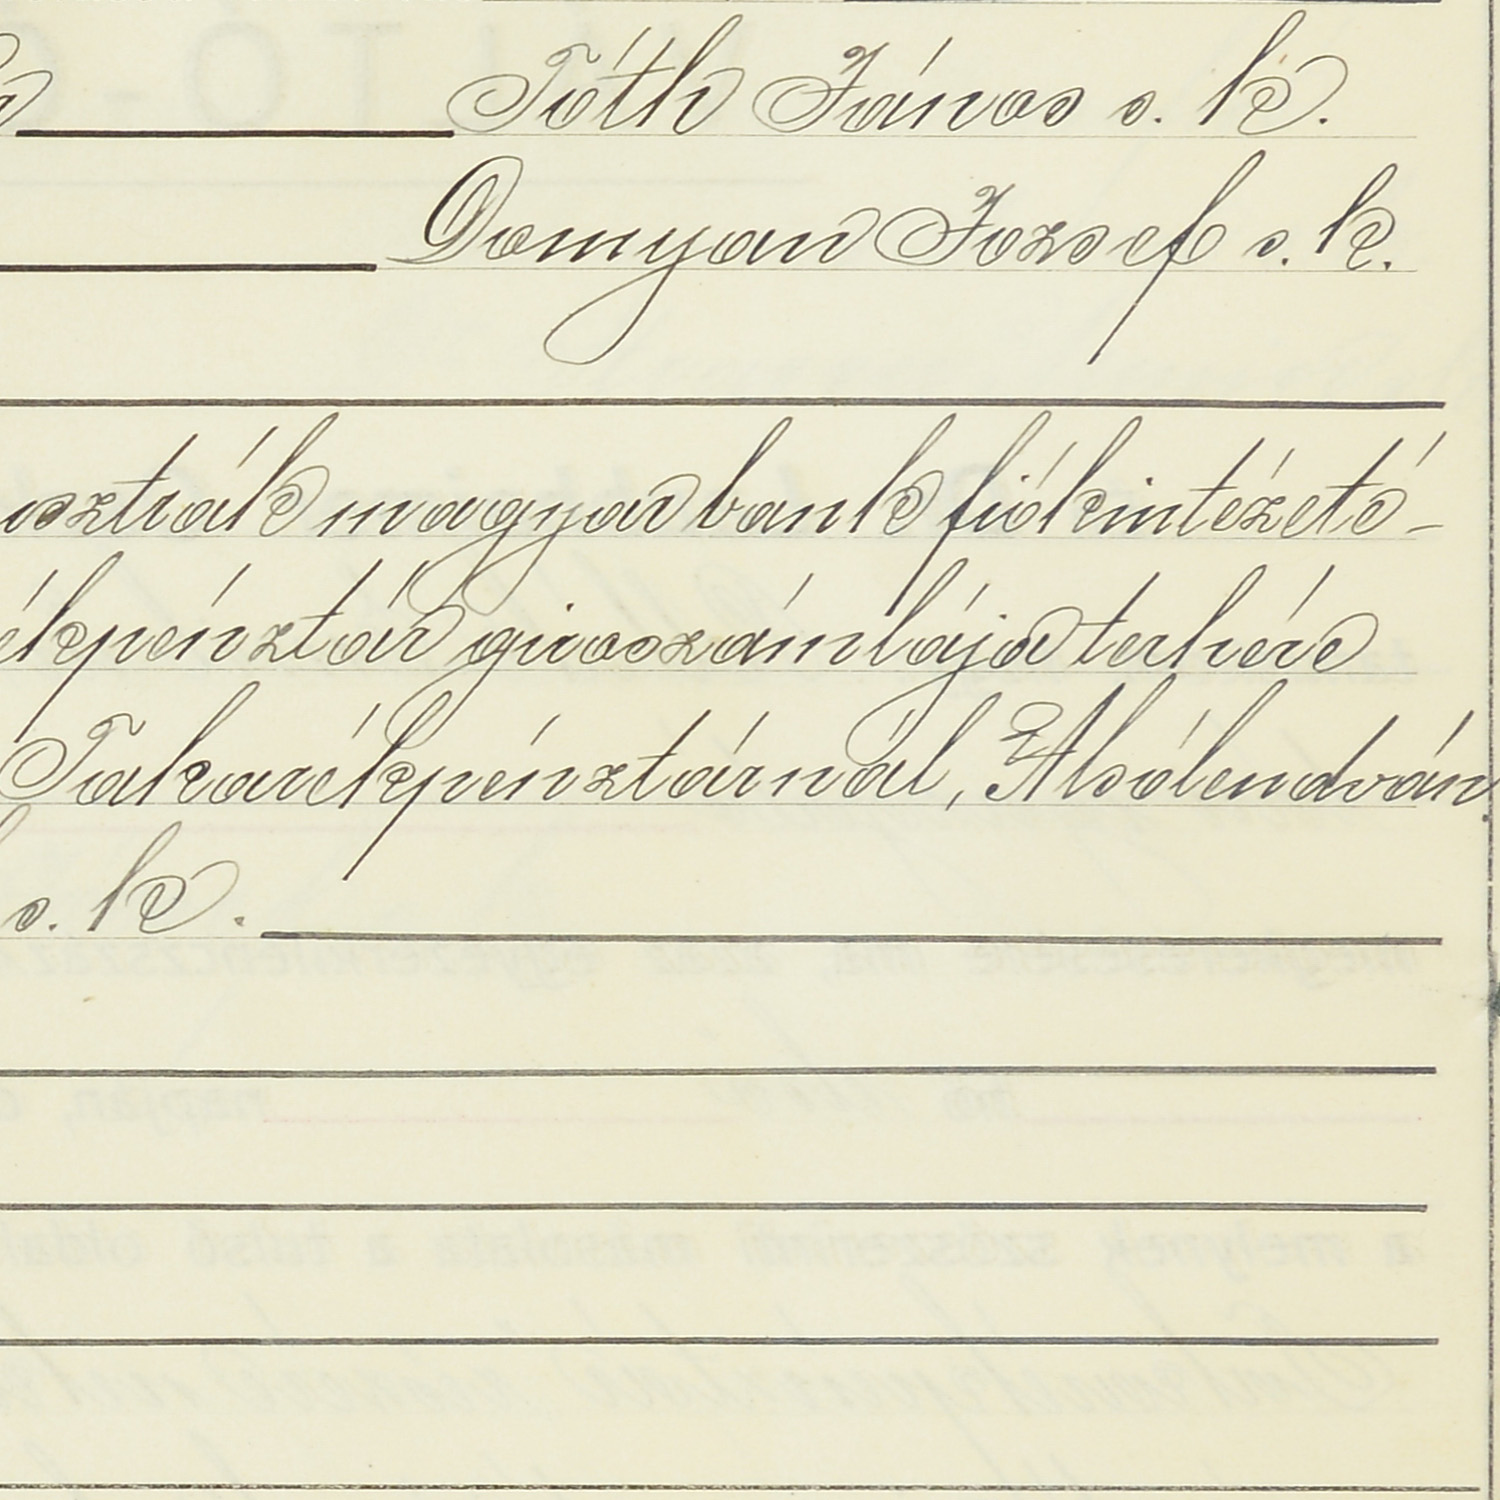 Tóth János s. k.
Domyan Jozsef s. k.
osztrák magyar bank fiókintézeté-
ékpénztár giroszámlája terhére
Takarékpénztárnál, Alsólendván
s. k.